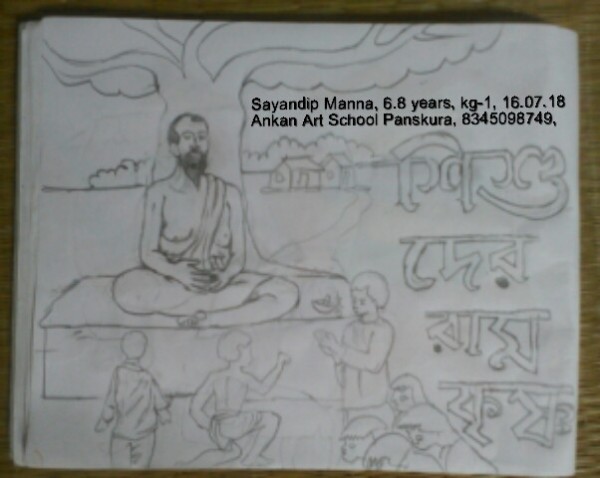 Sayandip Manna, 6.8 years, kg-1, 16.07.18
Ankan Art School Panskura, 8345098749,
শিশু
দের
রাম
কৃষ্ণ